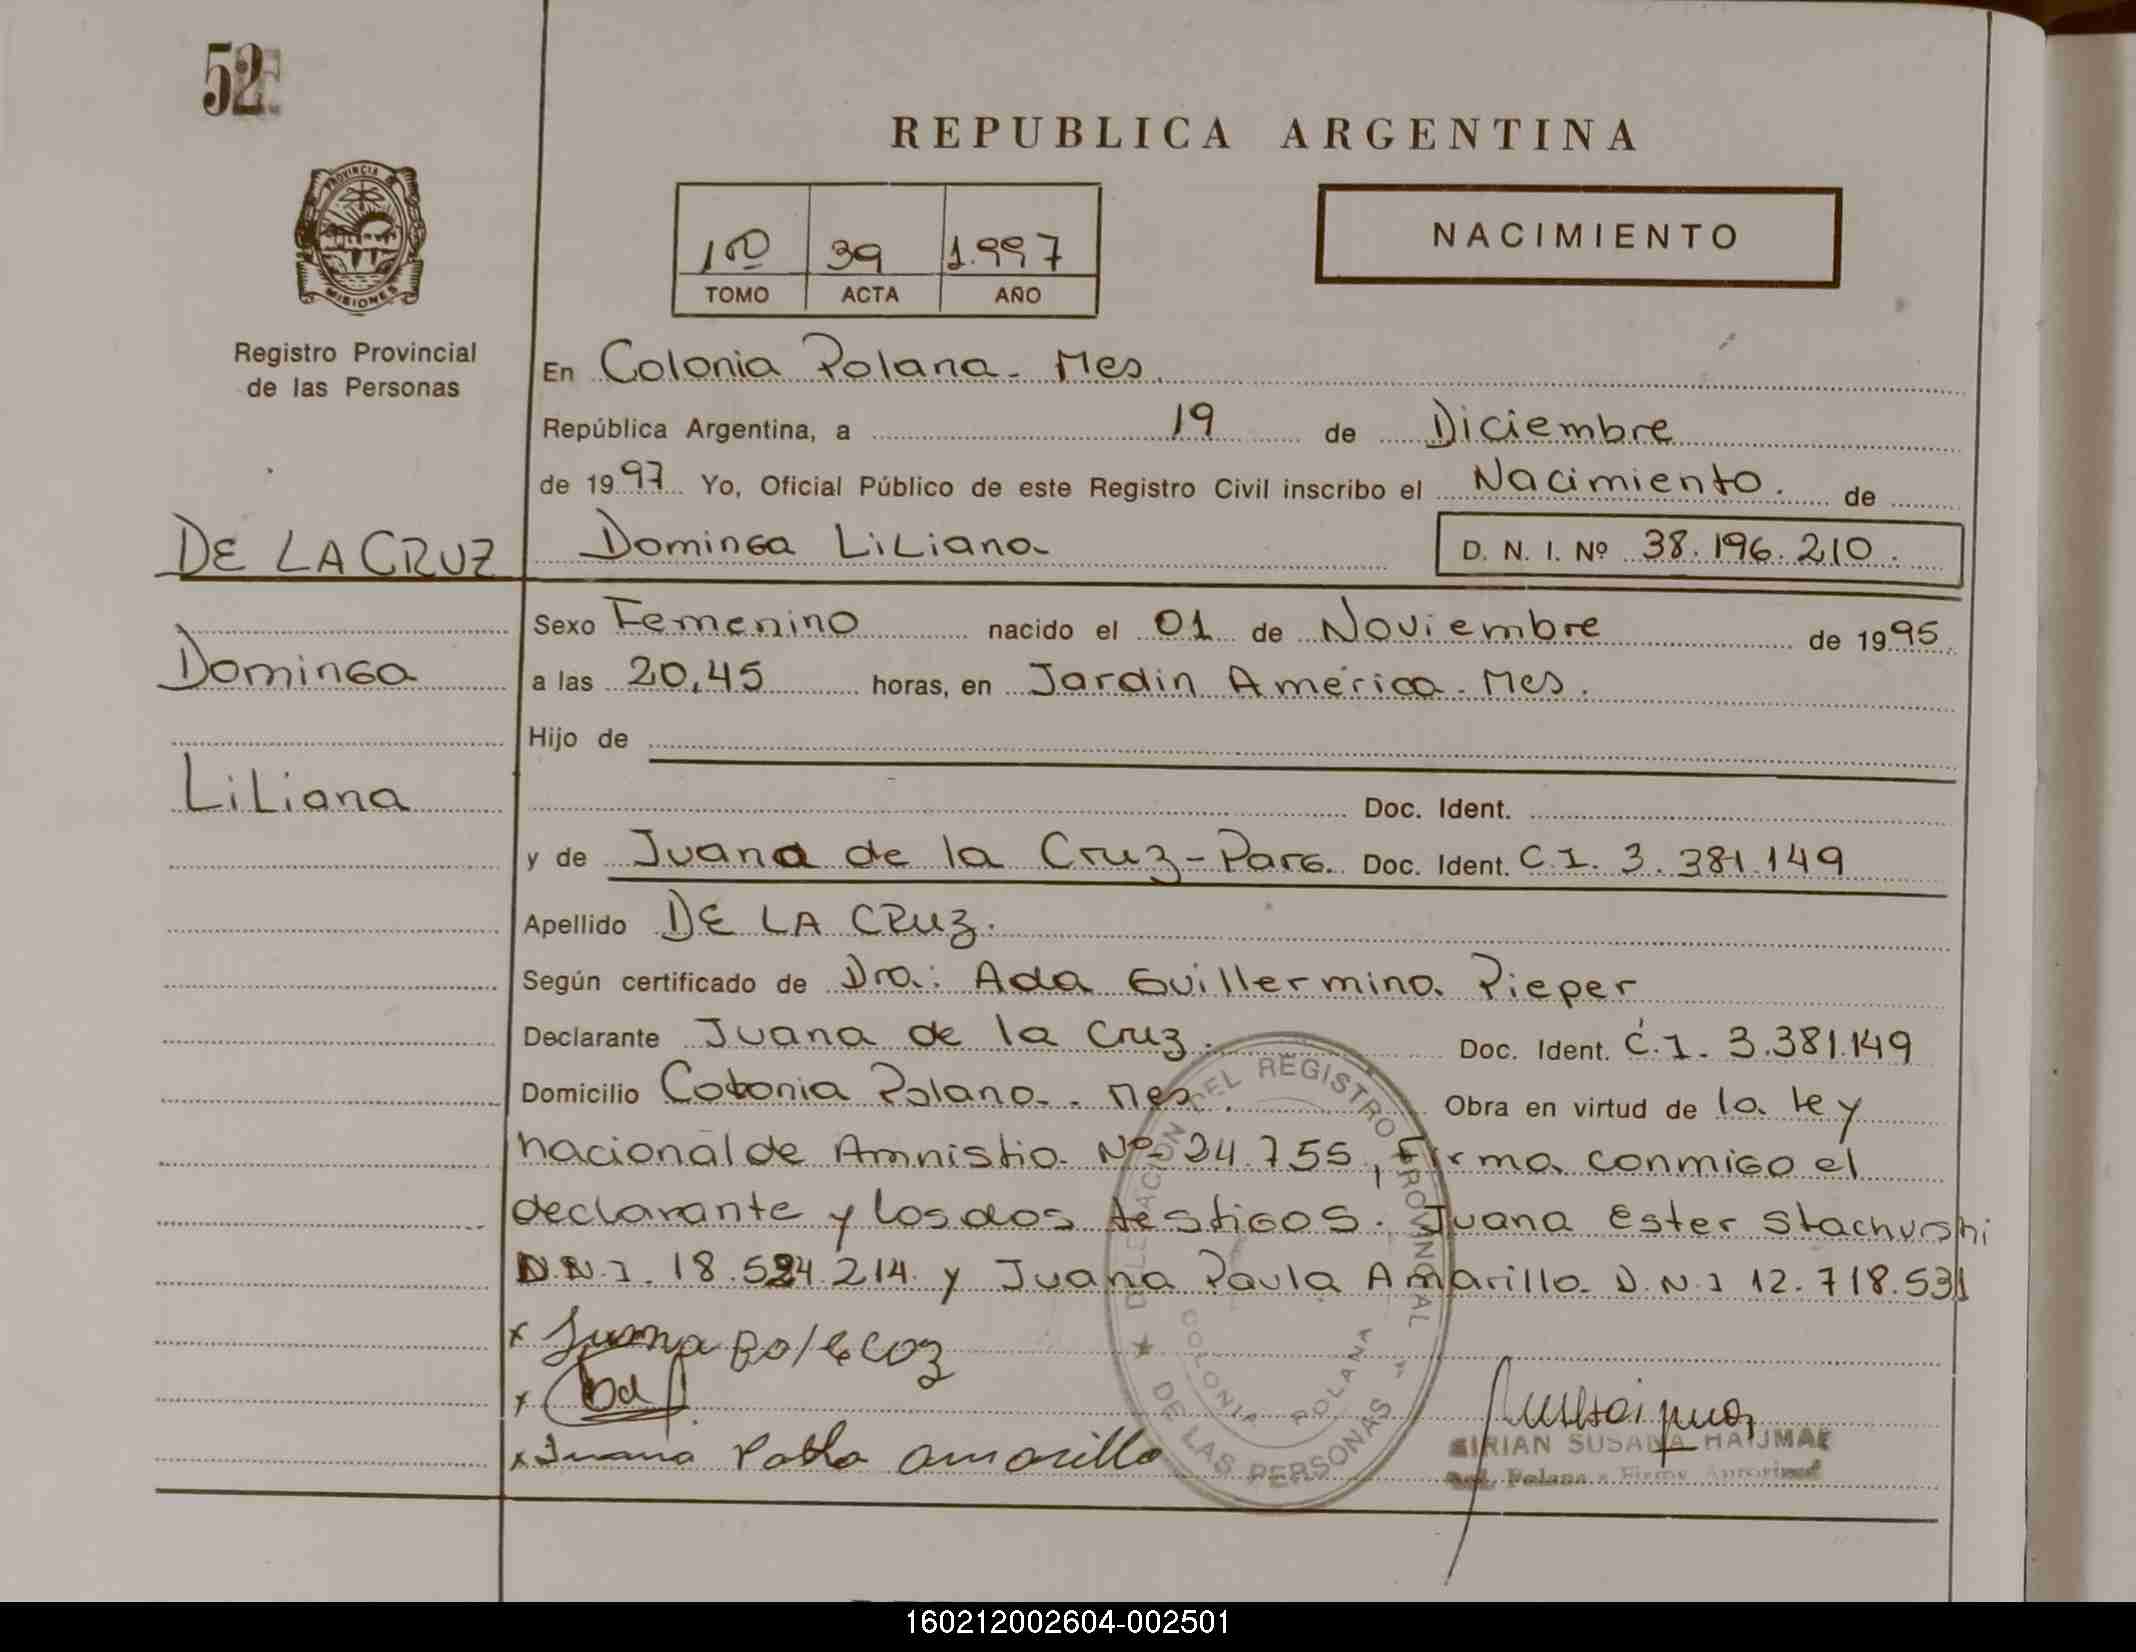 52
REPUBLICA ARGENTINA
PROVINCIA
MISIONES
Registro Provincial
de las Personas
1ro 39 1.997
TOMO ACTA AÑO
NACIMIENTO
En Colonia Polana - Mes.
República Argentina, a 19 de Diciembre
de 1997 Yo, Oficial Público de este Registro Civil inscribo el Nacimiento. de
DE LA CRUZ Dominga Liliana D. N. I. Nº 38.196.210.
Sexo Femenino nacido el 01 de Noviembre de 1995
Dominga a las 20,45 horas, en Jardin América - Mes.
Hijo de
Liliana Doc. Ident.
y de Juana de la Cruz - Parg. Doc. Ident. C.I. 3.381.149
Apellido DE LA CRUZ.
Según certificado de Dra: Ada Guillermina Pieper
Declarante Juana de la Cruz. Doc. Ident. C.I. 3.381.149
Domicilio Colonia Polana - Mes. Obra en virtud de la ley
nacional de Amnistia Nº 24.755, Firma conmigo el
declarante y los dos testigos. Juana Ester Stachurski
D.N.I. 18.524.214 y Juana Paula Amarillo D.N.I 12.718.531
x Juana
x
x Juana Pabla amarillo
DELEGACION DEL REGISTRO PROVINCIAL
DE LAS PERSONAS
COLONIA POLANA
MIRIAN SUSANA
Polana
160212002604-002501